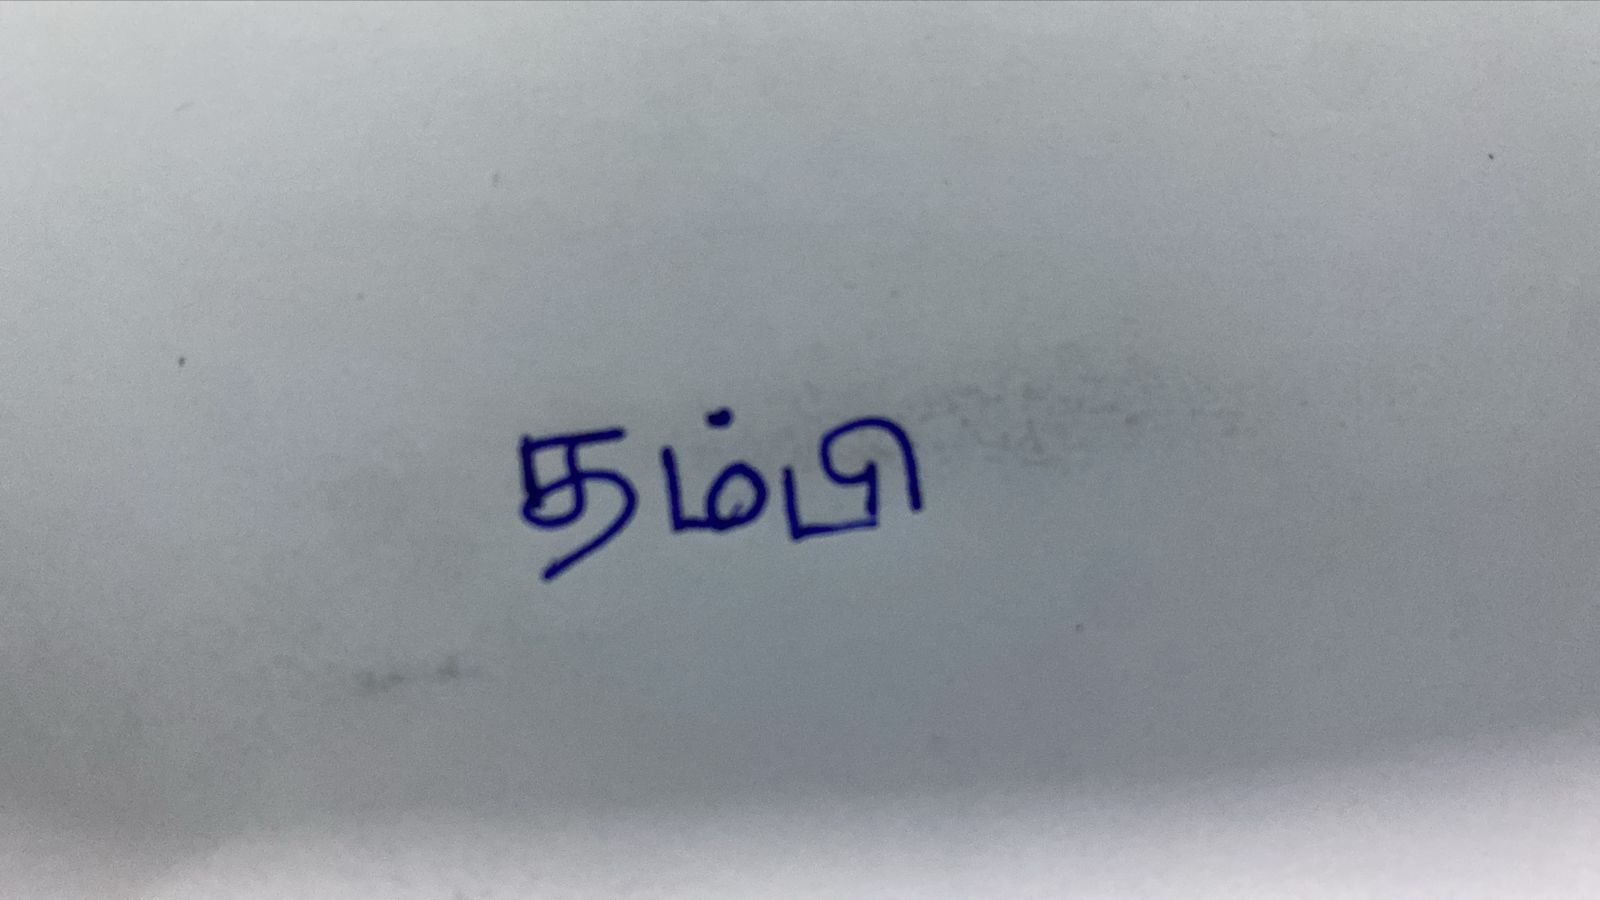 தம்பி